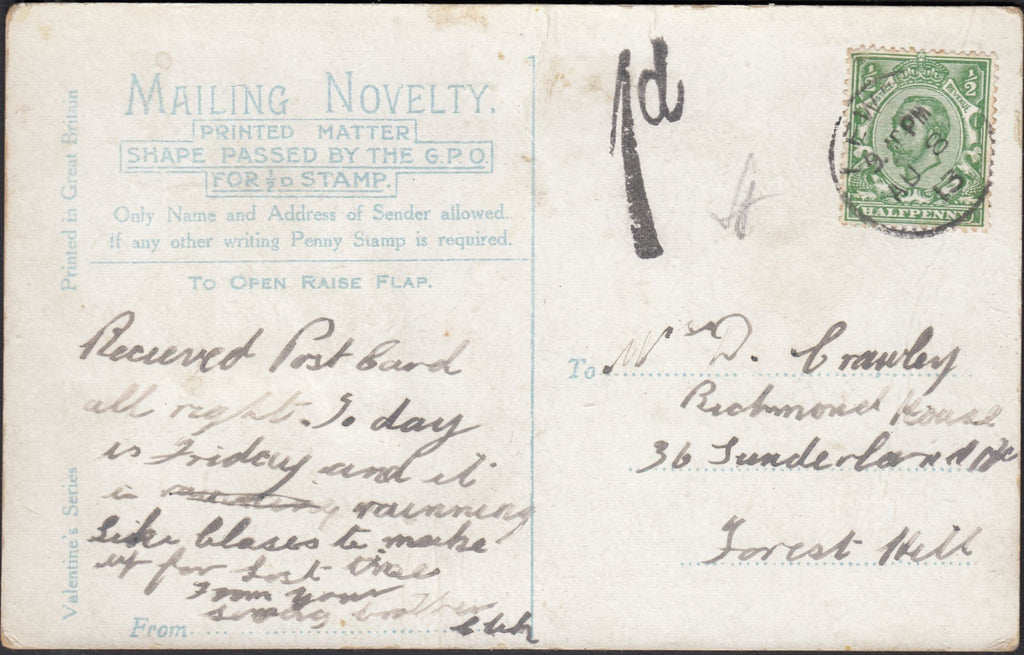 MAILING NOVELTY.
PRINTED MATTER
SHAPE PASSED BY THE G.P.O.
FOR ½D STAMP.
Only Name and Address of Sender allowed.
If any other writing Penny Stamp is required.
TO OPEN RAISE FLAP.
Printed in Great Britain
Valentine's Series
Recieved Post Card
all right. To day
is Friday and it
is rainning
like blases to make
up for lost time
From your
loving brother
From
1d
½ ½
POSTAGE REVENUE
HALFPENNY
PM
AU
13
To Mrs D. Crawley
Richmond House
36 Sunderland Rd
Forest Hill